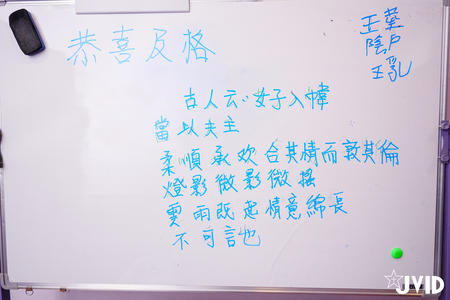 恭喜及格
玉莖
陰戶
玉乳
古人云:女子入幃
當以夫主
柔順承欢合其情而敦其倫
燈影微影微搖
雲雨既起情意綿長
不可言也
JYID